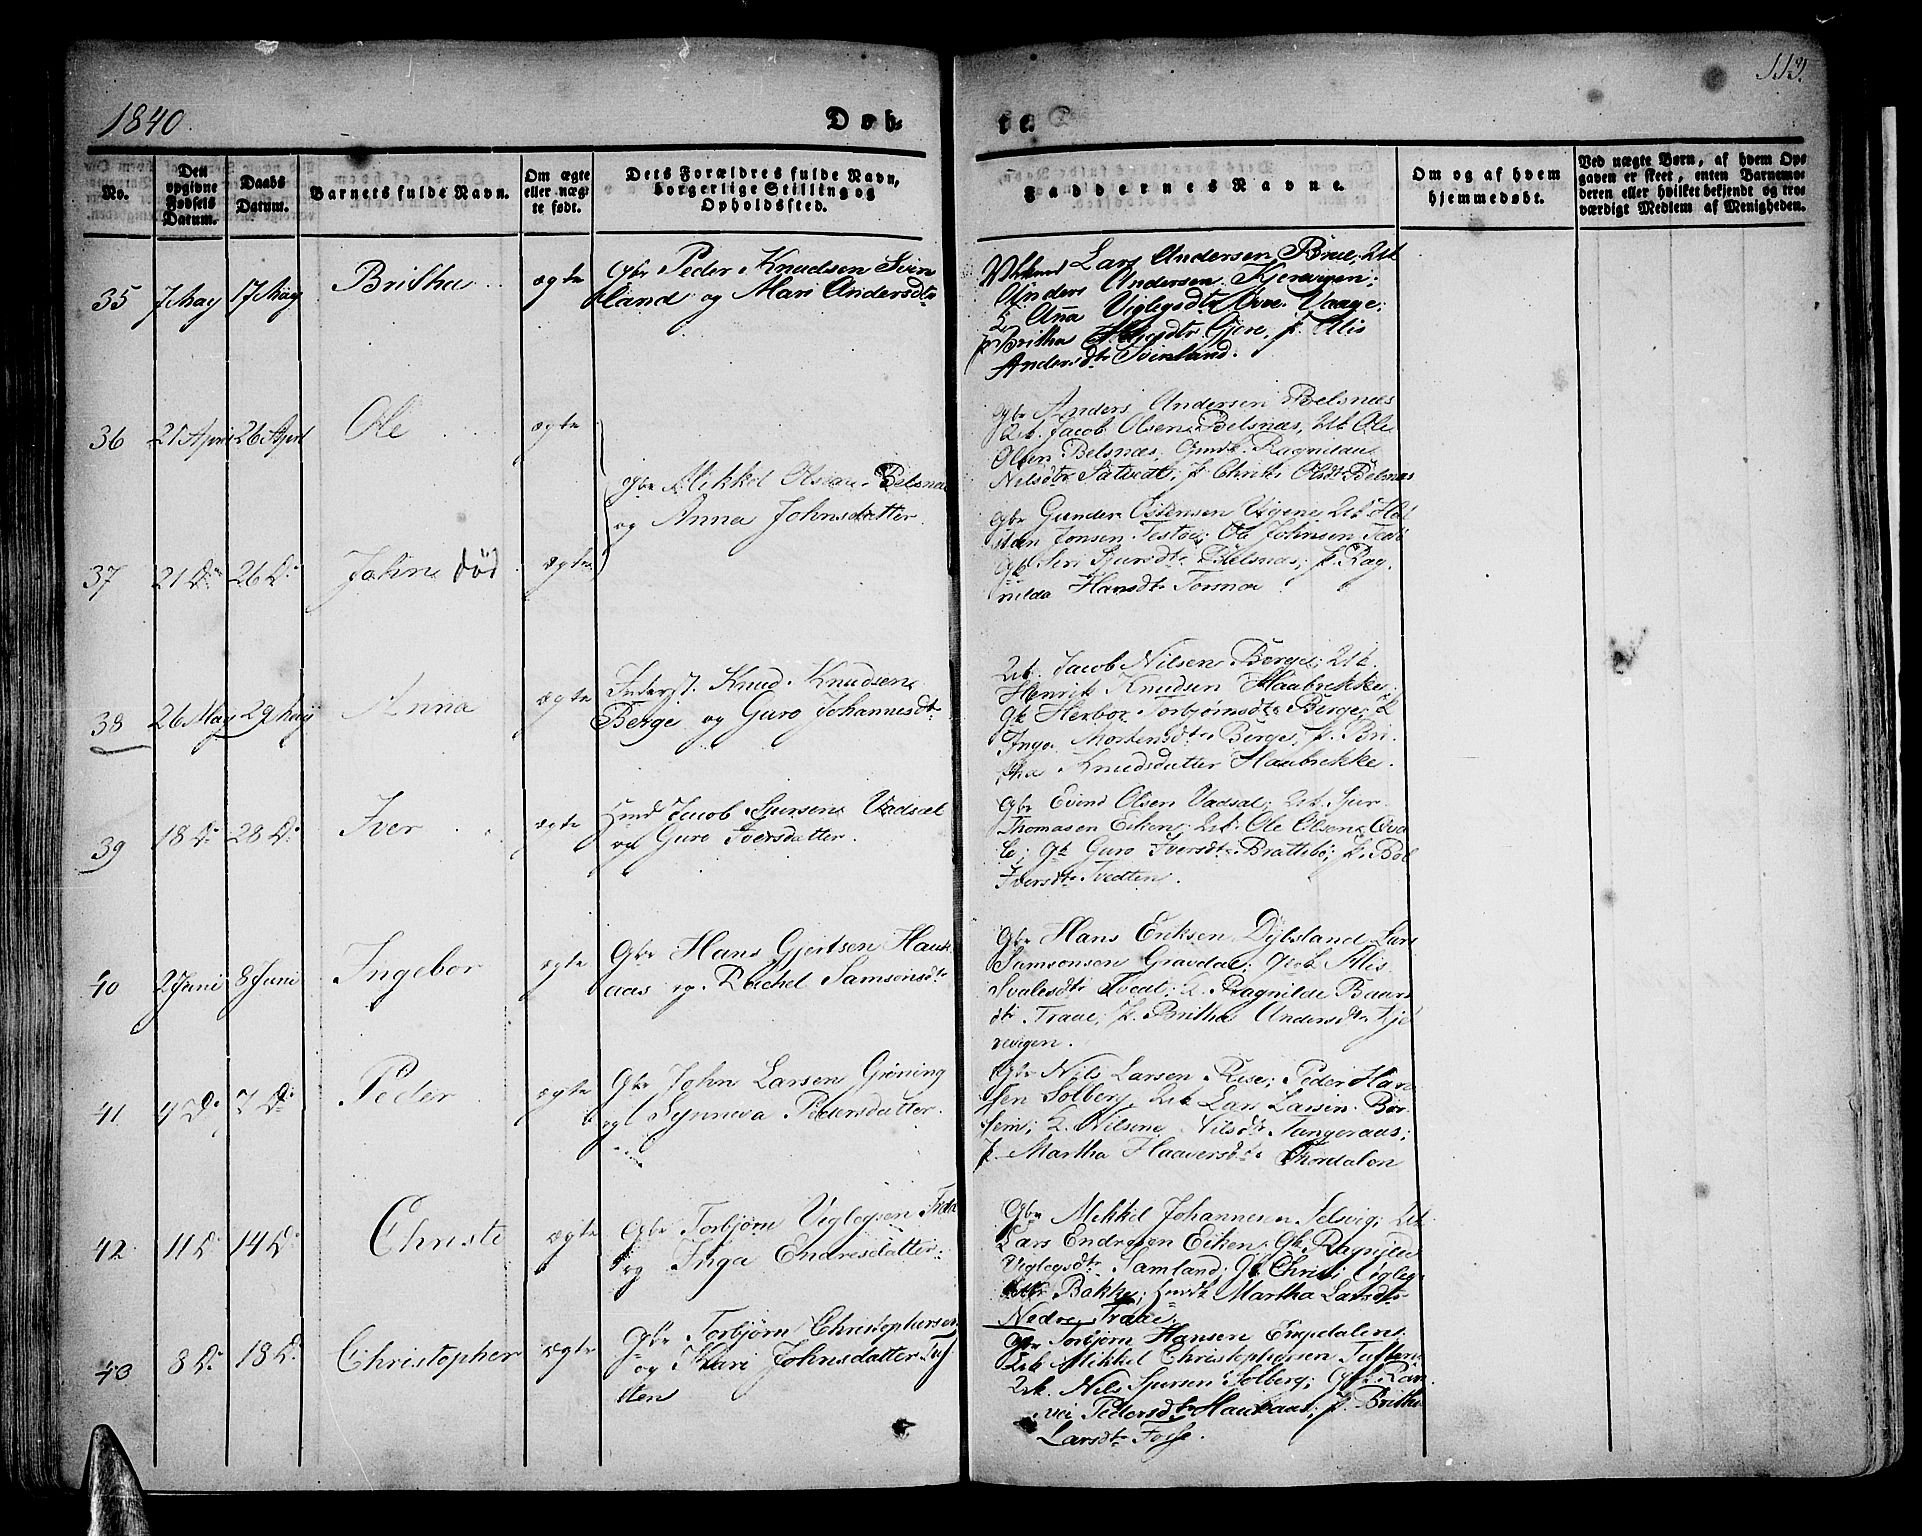 1840
Døb-
te.
113.
No.
Den opgivne Fødsels Datum.
Daabs Datum.
Barnets fulde Navn.
Om ægte eller uægte født.
Dets Forældres fulde Navn, borgerlige Stilling og Opholdssted.
Faddernes Navne.
Om og af hvem hjemmedøbt.
Ved uægte Børn, af hvem Opgaven er skeet, enten Barnemoderen eller hvilket bekjendt og troværdigt Medlem af Menigheden.
35 7 May 17 May Britha ægte Gbr Peder Knudsen Svin
land og Mari Andersdtr
Lars Andersen Brue, Ult
Anders Andersen Kjerevigen;
Anna Viglegsdtr Vaage;
Britha Gjøre, p. Alis
Andersdtr Svinland.
36 21 April 26 April Ole ægte
Gbr Mikkel Olsen Belsnæs
og Anna Johnsdatter
Gbr Anders Andersen Belsnæs
Ult. Jacob Olsen Belsnæs, Ult Ole
Olsen Belsnæs, Ragnilda
Nilsdtr p. Olsdtr Belsnæs
37 21 Do 26 Do John død ægte
Gbr Gunder Ostensen Ult
Jonsen Ole Johnsen
Siri Sjursdtr Belsnæs; p. Rag
nilda Hansdtr
38 26 May 29 May Anna ægte Inderst. Knud Knudsen
Berge og Guro Johannesdtr
Ult. Jacob Nilsen Berge; Ult.
Henrik Knudsen Haubrekke;
Gk Herbor Torbjørnsdtr Berge;
Inga Mortensdtr Berge, p. Bri
tha Knudsdatter Haubrekke.
39 18 Do 28 Do Iver ægte Jacob Sjursen Vadsal
og Guro Iversdatter.
Gbr Eivind Olsen Vadsal; Ult. Sjur
Thomasen Eiken; Ult. Ole Olsen
Gk Guro Iversdtr Brattebø; p.
Iversdtr Tvedten.
40 2 Juni 8 Juni Ingebor ægte Gbr Hans Gjertsen Hauk
aas og Rachel Samsonsdtr
Gbr Hans Eriksen Dybsland Lars
Samsonsen Gravdal; Alis
Svalesdtr Tvedt; Ragnilde Baars
dtr Traae; p. Britha Andersdtr Kje
revigen.
41 4 Do 7 Do Peder ægte Gbr John Larsen Grøning
og Synneva Pedersdatter.
Gbr Nils Larsen Rise; Peder Han
sen Solberg Ult Lars Larsen Bør
sem; Nilsdtr Tangeraas;
p. Martha Haaversdtr
42 11 Do 14 Do Christi ægte Gbr Torbjørn Viglegsen
og Inga Endresdatter
Gbr Mikkel Johannesen Selsvig; Ult
Lars Endresen Eiken. Gk. Ragnilda
Viglegsdtr Samland; Gk Christi Vigleg
sdtr Bakke; Martha Larsdtr
Nedre Traae;
43 8 Do 18 Do Christopher ægte Gbr Torbjørn Christophersen
og Mari Johnsdatter Tuf
ten
Gbr Torbjørn Hansen Engedalen;
Ult Mikkel Christophersen Tuften;
Ult. Nils Sjursen Solberg; Gk Ran
vei Pedersdtr Haukaas; p. Britha
Larsdtr Fosse.